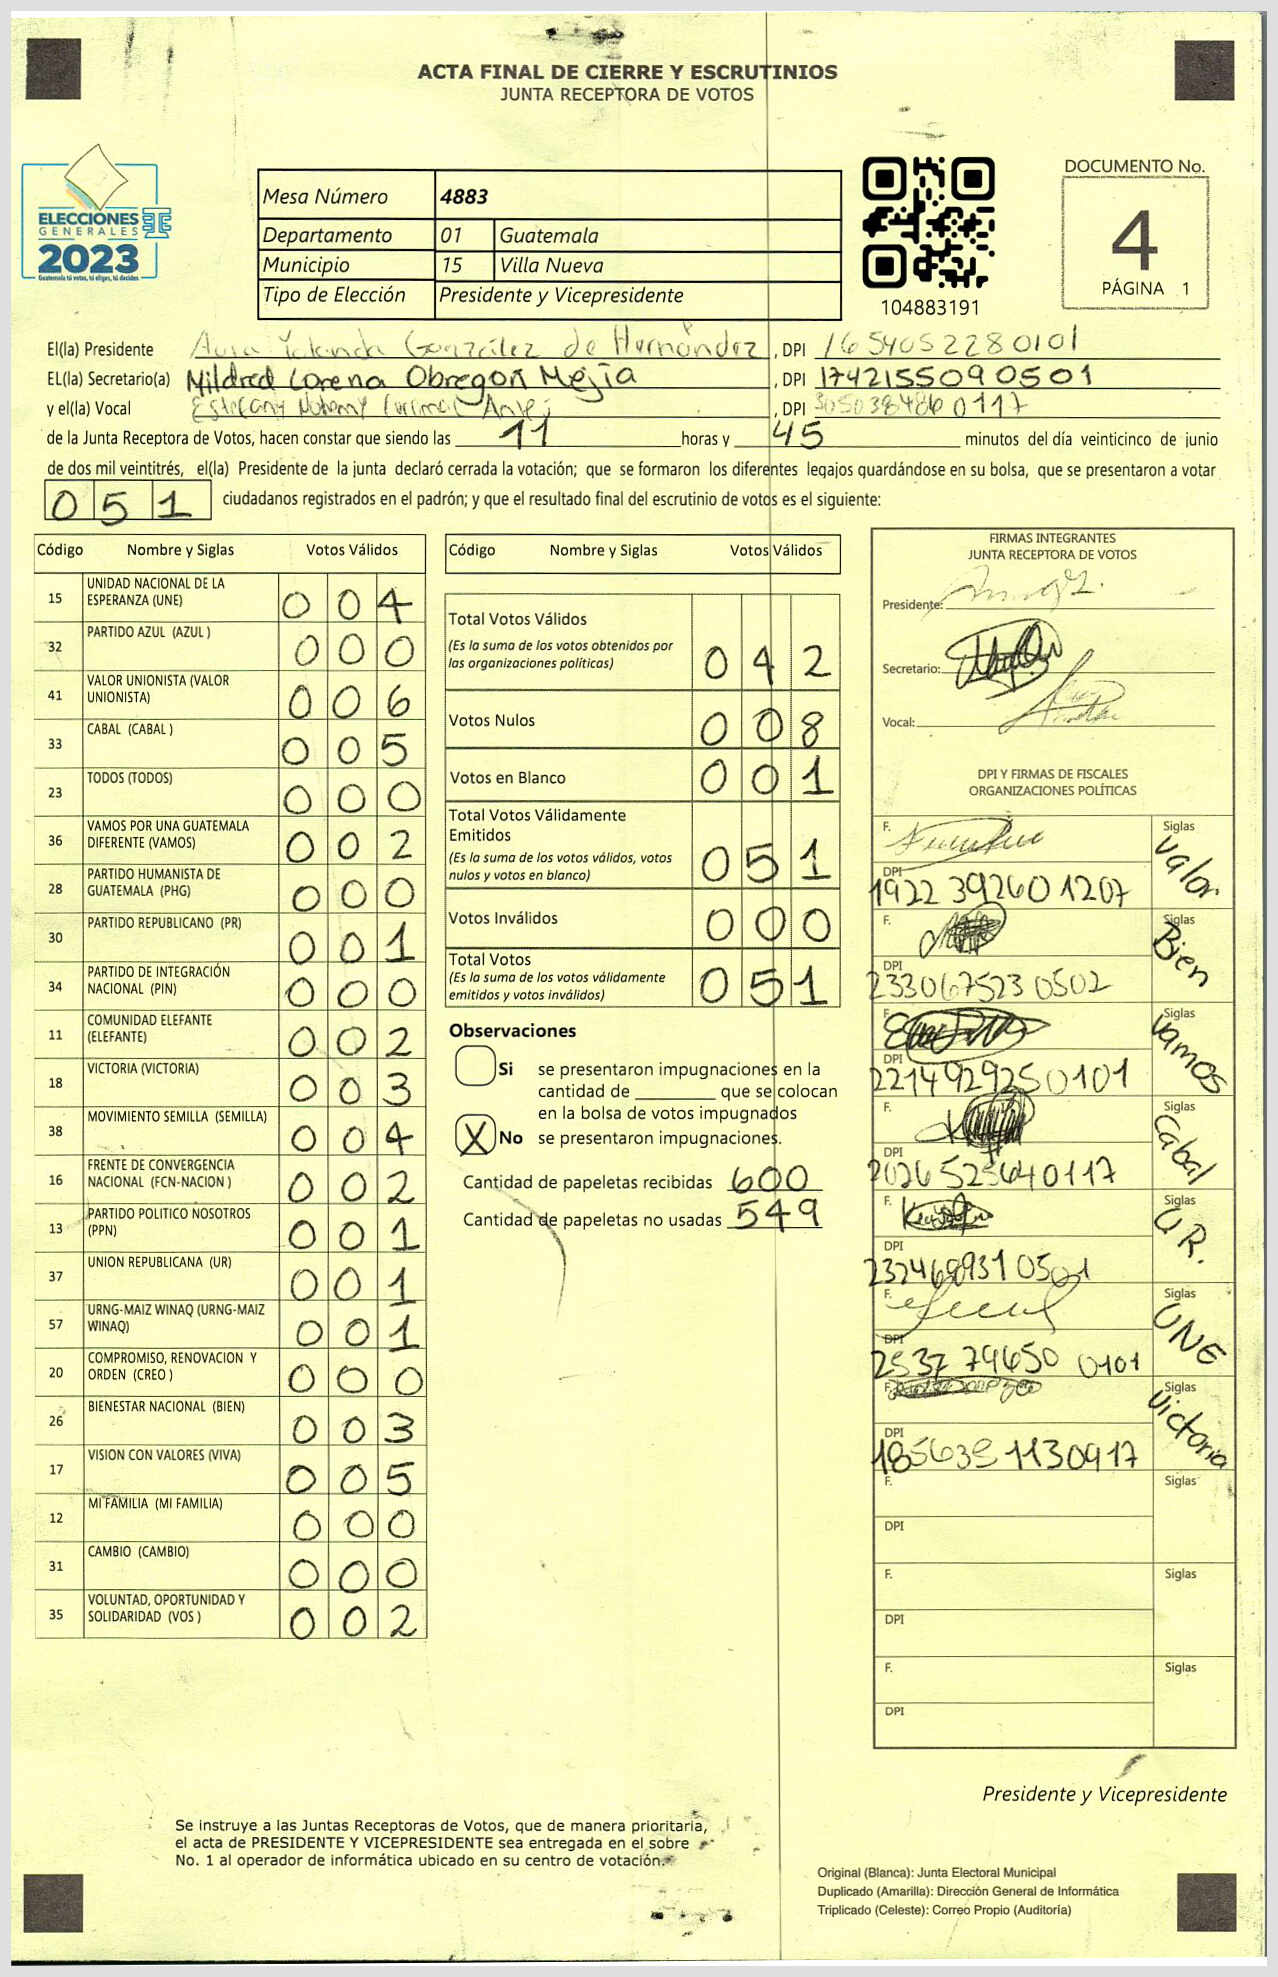 ACTA FINAL DE CIERRE Y ESCRUTINIOS
JUNTA RECEPTORA DE VOTOS
ELECCIONES
GENERALES
2023
Guatemala tú votas, tú eliges, tú decides
Mesa Número 4883
Departamento 01 Guatemala
Municipio 15 Villa Nueva
Tipo de Elección Presidente y Vicepresidente
104883191
DOCUMENTO No.
4
PÁGINA 1
El(la) Presidente Aura Yolanda González de Hernández, DPI 1654052280101
EL(la) Secretario(a) Mildred Lorena Obregon Mejía, DPI 1742155090501
y el(la) Vocal, DPI 3050384860117
de la Junta Receptora de Votos, hacen constar que siendo las 11 horas y 45 minutos del día veinticinco de junio
de dos mil veintitrés, el(la) Presidente de la junta declaró cerrada la votación; que se formaron los diferentes legajos guardándose en su bolsa, que se presentaron a votar
051 ciudadanos registrados en el padrón; y que el resultado final del escrutinio de votos es el siguiente:
Código Nombre y Siglas Votos Válidos
15 UNIDAD NACIONAL DE LA ESPERANZA (UNE) 004
32 PARTIDO AZUL (AZUL ) 000
41 VALOR UNIONISTA (VALOR UNIONISTA) 006
33 CABAL (CABAL ) 005
23 TODOS (TODOS) 000
36 VAMOS POR UNA GUATEMALA DIFERENTE (VAMOS) 002
28 PARTIDO HUMANISTA DE GUATEMALA (PHG) 000
30 PARTIDO REPUBLICANO (PR) 001
34 PARTIDO DE INTEGRACIÓN NACIONAL (PIN) 000
11 COMUNIDAD ELEFANTE (ELEFANTE) 002
18 VICTORIA (VICTORIA) 003
38 MOVIMIENTO SEMILLA (SEMILLA) 004
16 FRENTE DE CONVERGENCIA NACIONAL (FCN-NACION ) 002
13 PARTIDO POLITICO NOSOTROS (PPN) 001
37 UNION REPUBLICANA (UR) 001
57 URNG-MAIZ WINAQ (URNG-MAIZ WINAQ) 001
20 COMPROMISO, RENOVACION Y ORDEN (CREO ) 000
26 BIENESTAR NACIONAL (BIEN) 003
17 VISION CON VALORES (VIVA) 005
12 MI FAMILIA (MI FAMILIA) 000
31 CAMBIO (CAMBIO) 000
35 VOLUNTAD, OPORTUNIDAD Y SOLIDARIDAD (VOS ) 002
Código Nombre y Siglas Votos Válidos
Total Votos Válidos 042
(Es la suma de los votos obtenidos por
las organizaciones políticas)
Votos Nulos 008
Votos en Blanco 001
Total Votos Válidamente
Emitidos 051
(Es la suma de los votos válidos, votos
nulos y votos en blanco)
Votos Inválidos 000
Total Votos 051
(Es la suma de los votos válidamente
emitidos y votos inválidos)
Observaciones
Si se presentaron impugnaciones en la
cantidad de ________ que se colocan
en la bolsa de votos impugnados
X No se presentaron impugnaciones.
Cantidad de papeletas recibidas 600
Cantidad de papeletas no usadas 549
FIRMAS INTEGRANTES
JUNTA RECEPTORA DE VOTOS
Presidente:
Secretario:
Vocal:
DPI Y FIRMAS DE FISCALES
ORGANIZACIONES POLÍTICAS
F. Siglas Valor
DPI 1922 39260 1207
F. Siglas Bien
DPI 233067523 0502
F. Siglas Vamos
DPI 221492925 0101
F. Siglas Cabal
DPI 2026 52564 0117
F. Siglas U.R.
DPI 232468931 0501
F. Siglas UNE
DPI 2537 79650 0101
F. Siglas Victoria
DPI 1130917
F. Siglas
DPI
F. Siglas
DPI
F. Siglas
DPI
Presidente y Vicepresidente
Se instruye a las Juntas Receptoras de Votos, que de manera prioritaria,
el acta de PRESIDENTE Y VICEPRESIDENTE sea entregada en el sobre
No. 1 al operador de informática ubicado en su centro de votación.
Original (Blanca): Junta Electoral Municipal
Duplicado (Amarilla): Dirección General de Informática
Triplicado (Celeste): Correo Propio (Auditoría)